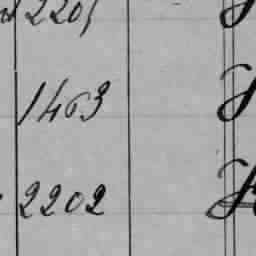 2201
1463
2202